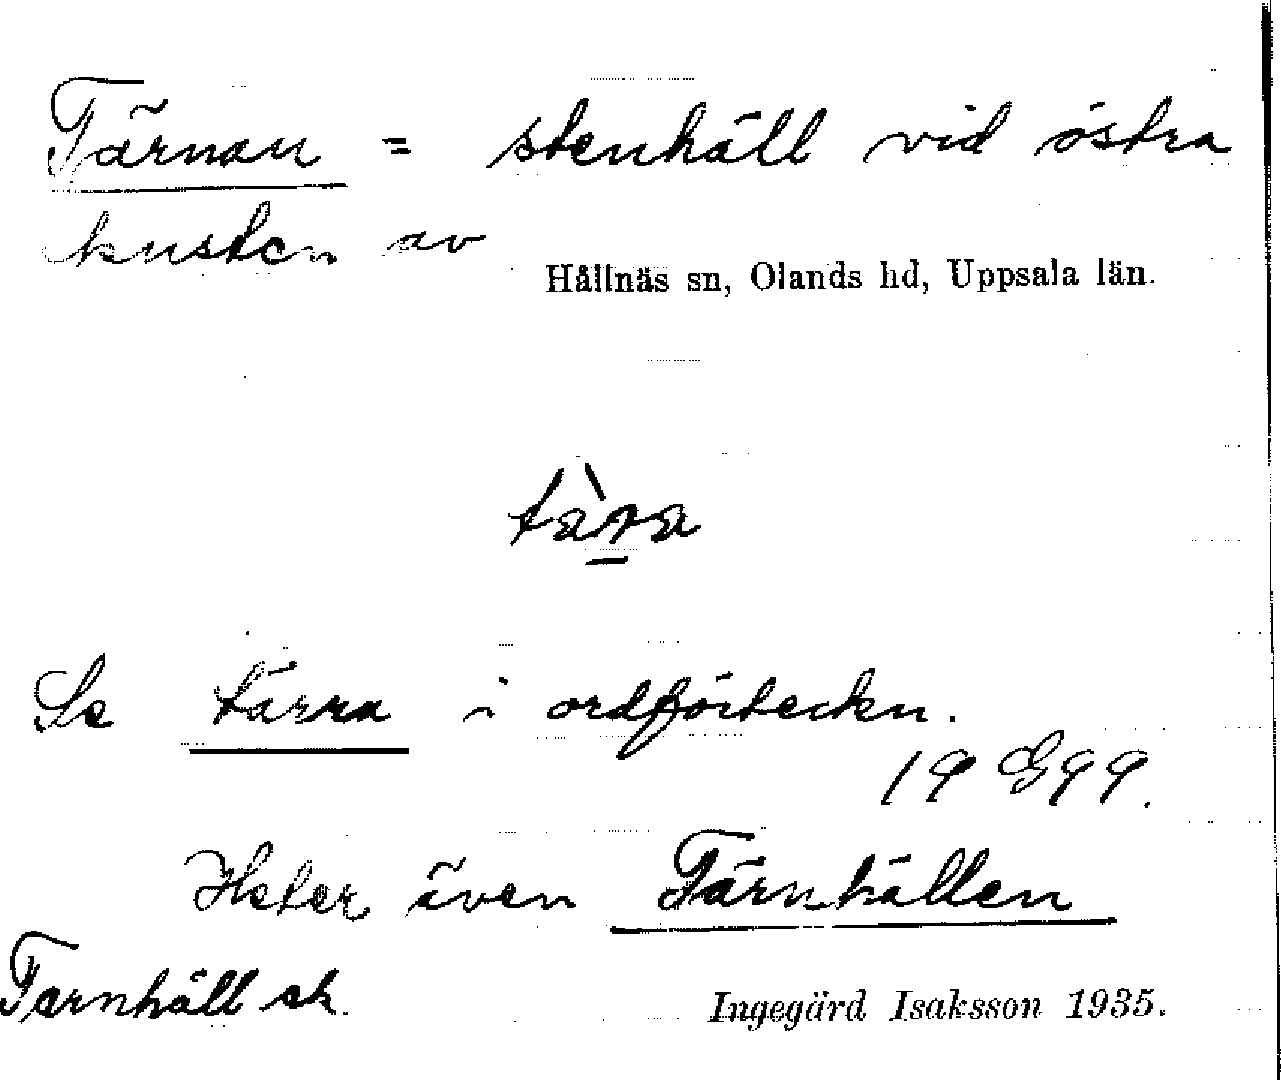 Tärnan = stenhäll vid östra
kusten av
Hållnäs sn, Olands hd, Uppsala län.
Se tärna i ordförteckn.
19 G 99.
Heter även Tärnhällen
Tärnhäll sk.
Ingegärd Isaksson 1935.